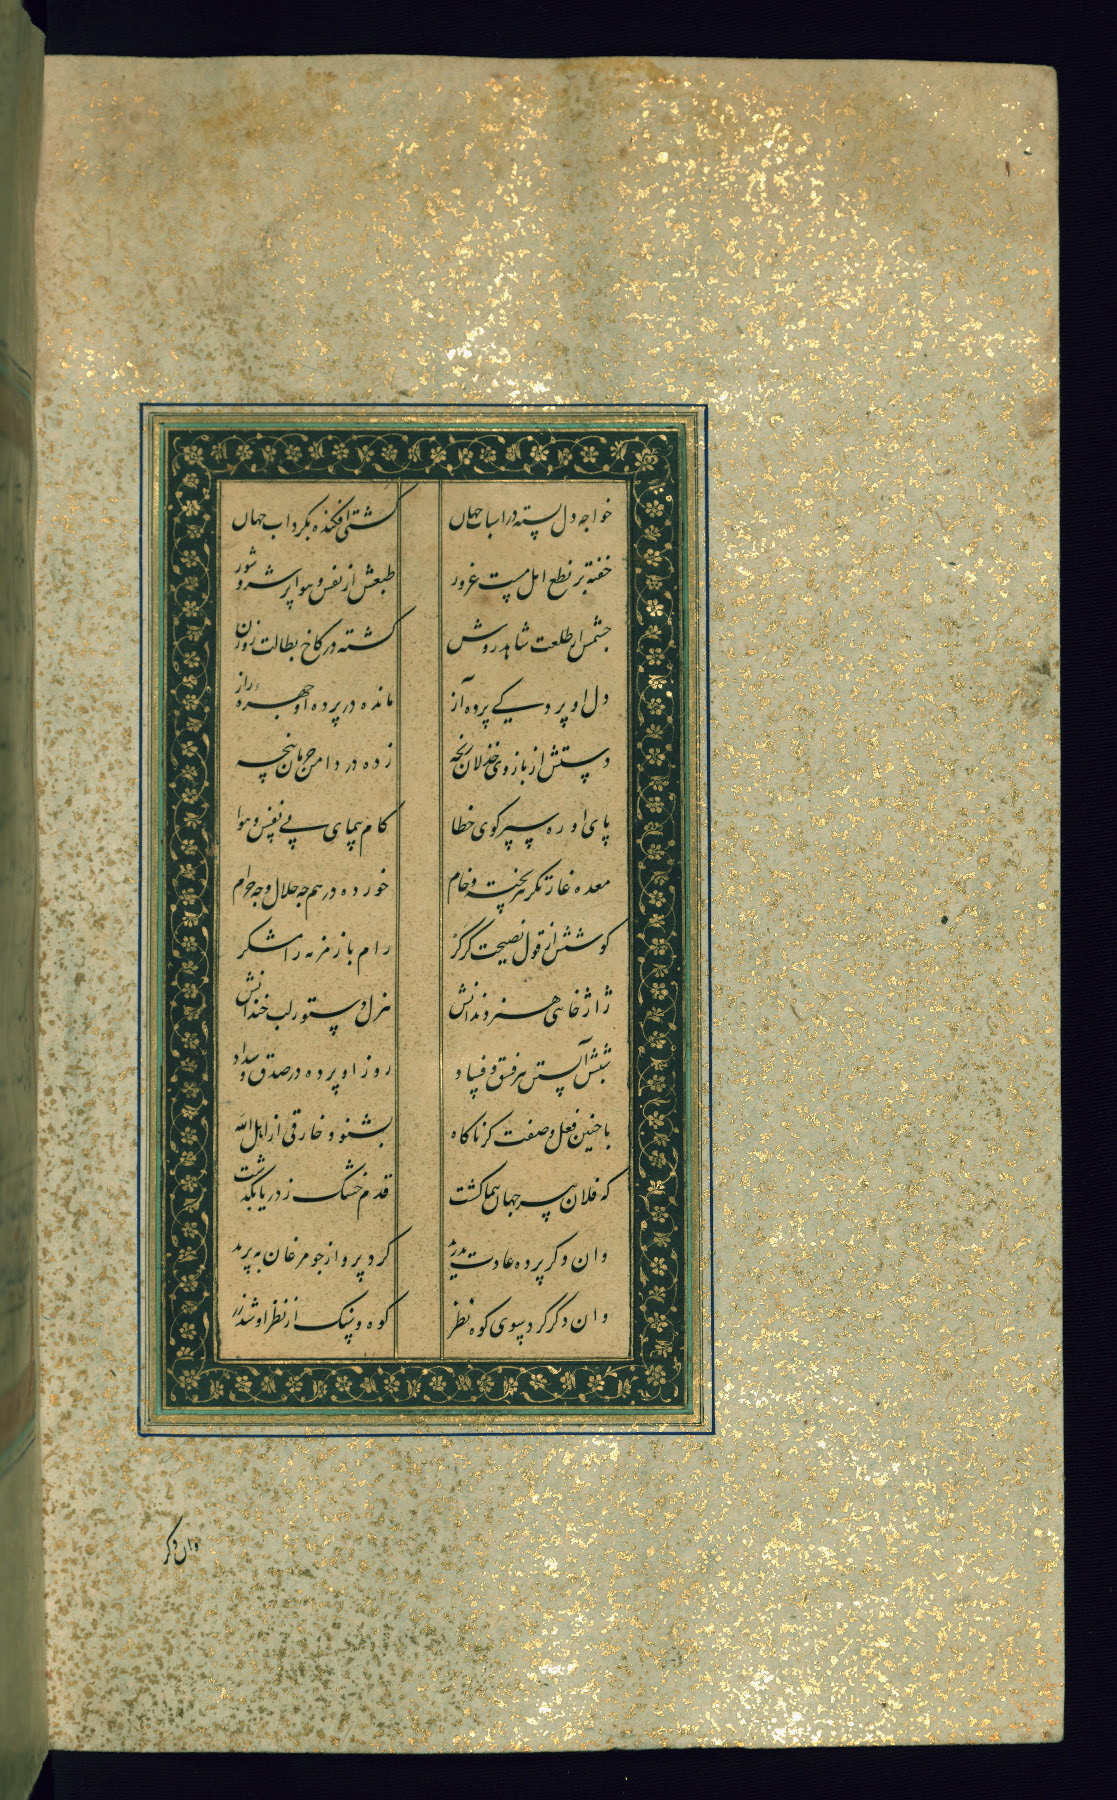 خواجه دل بسته در اسباب جهان کشتی افکنده بکرداب جهان
خفته بر نطع امل مست غرور طبعش از نفس و هوا پر شر و شور
چشمش از طلعت شاهد روشن کشته در کاخ بطالت روزن
دل او پردکی پرده آز مانده در پرده او چهره راز
دستش از بازوی خذلان رنجه زده در دامن حرمان پنجه
پای او ره سپر کوی خطا کام پیمای پی نفس و هوا
معده غارتکر هر پخته و خام خورده در هم چه حلال و چه حرام
کوشش از قول نصیحت کر کر رام با زمزمه رامشکر
ژاژ خائی هنر دندانش هزل دستور لب خندانش
شبش آبستن هر فسق و فساد روز او پرده در صدق و سداد
با چنین فعل و صفت کز ناکاه بشنود خارقی از اهل الله
که فلان بهر جهان پیما کشت قدم خشک ز دریا بکذشت
وان دکر پرده عادت بدرید کرد پرواز چو مرغان به پرید
وان دکر کرد بسوی کوه نظر کوه و سنک از نظر او شد زر
وان دکر